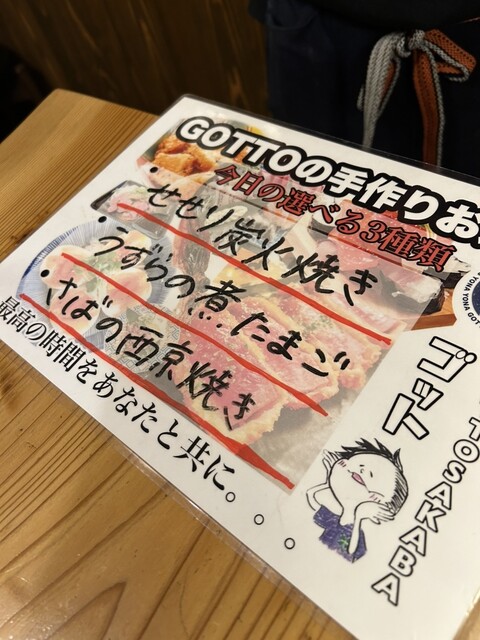 GOTTOの手作りお
今日の選べる3種類
・せせり炭火焼き
・うずらの煮たまご
・さばの西京焼き
最高の時間をあなたと共に。。。
ゴット
TOSAKABA
YONA YONA GOT